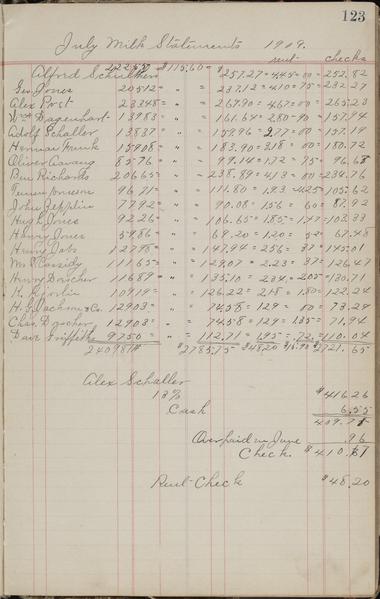 123
July Milk Statements 1909.
rent- checks
Alfred Schulthers 22257 $115.60 = $257.27 = 445 = 00 = 252.82
Geo. Jones 20512 = " = 237.12 = 410 = 75 = 232.27
Alex Post 23248 = " = 267.90 = 467 = 00 = 265.23
Wm Dagenhart 13983 " = 161.64 = 280 = 90 = 157.94
Adolf Schaller 13837 " = 159.96 277 = 00 = 157.19
Herman 15908 " = 183.90 = 318 = 00 = 180.72
Oliver 8576 " = 99.14 = 172 = 75 = 96.68
Ben Richards 20665 " = 238.89 = 413 = 00 = 234.76
9671 = " = 111.80 = 193 = 425 = 105.62
John Zepplin 7792 = " = 90.08 = 156 = 60 = 87.92
Hugh Jones 9226 = " = 106.65 = 185 = 147 = 103.33
Henry Ives 5986 = " = 69.20 = 120 = 52 = 67.48
Hiram 12798 = " = 147.94 = 256 = 37 = 145.01
Cassidy 11165 = " = 129.07 = 2.23 = 37 = 126.47
Henry Drocher 11689 " = 135.10 = 234 = 205 = 130.71
10919 = " = 126.22 = 218 = 180 = 122.24
12903 = " = 74.58 = 129 = 00 = 73.29
Chas. Drocher 12903 " = 74.58 = 129 = 135 = 71.94
Dave Griffith 9750 = " = 112.71 = 1.95 = 72 = 110.04
240981# $2785.75 $48.20 $16.90 $2721.65
Alex Schaller
13% $416.26
Cash 6.55
409.71
Overpaid in June .96
Check. $410.67
Rent-Check $48.20